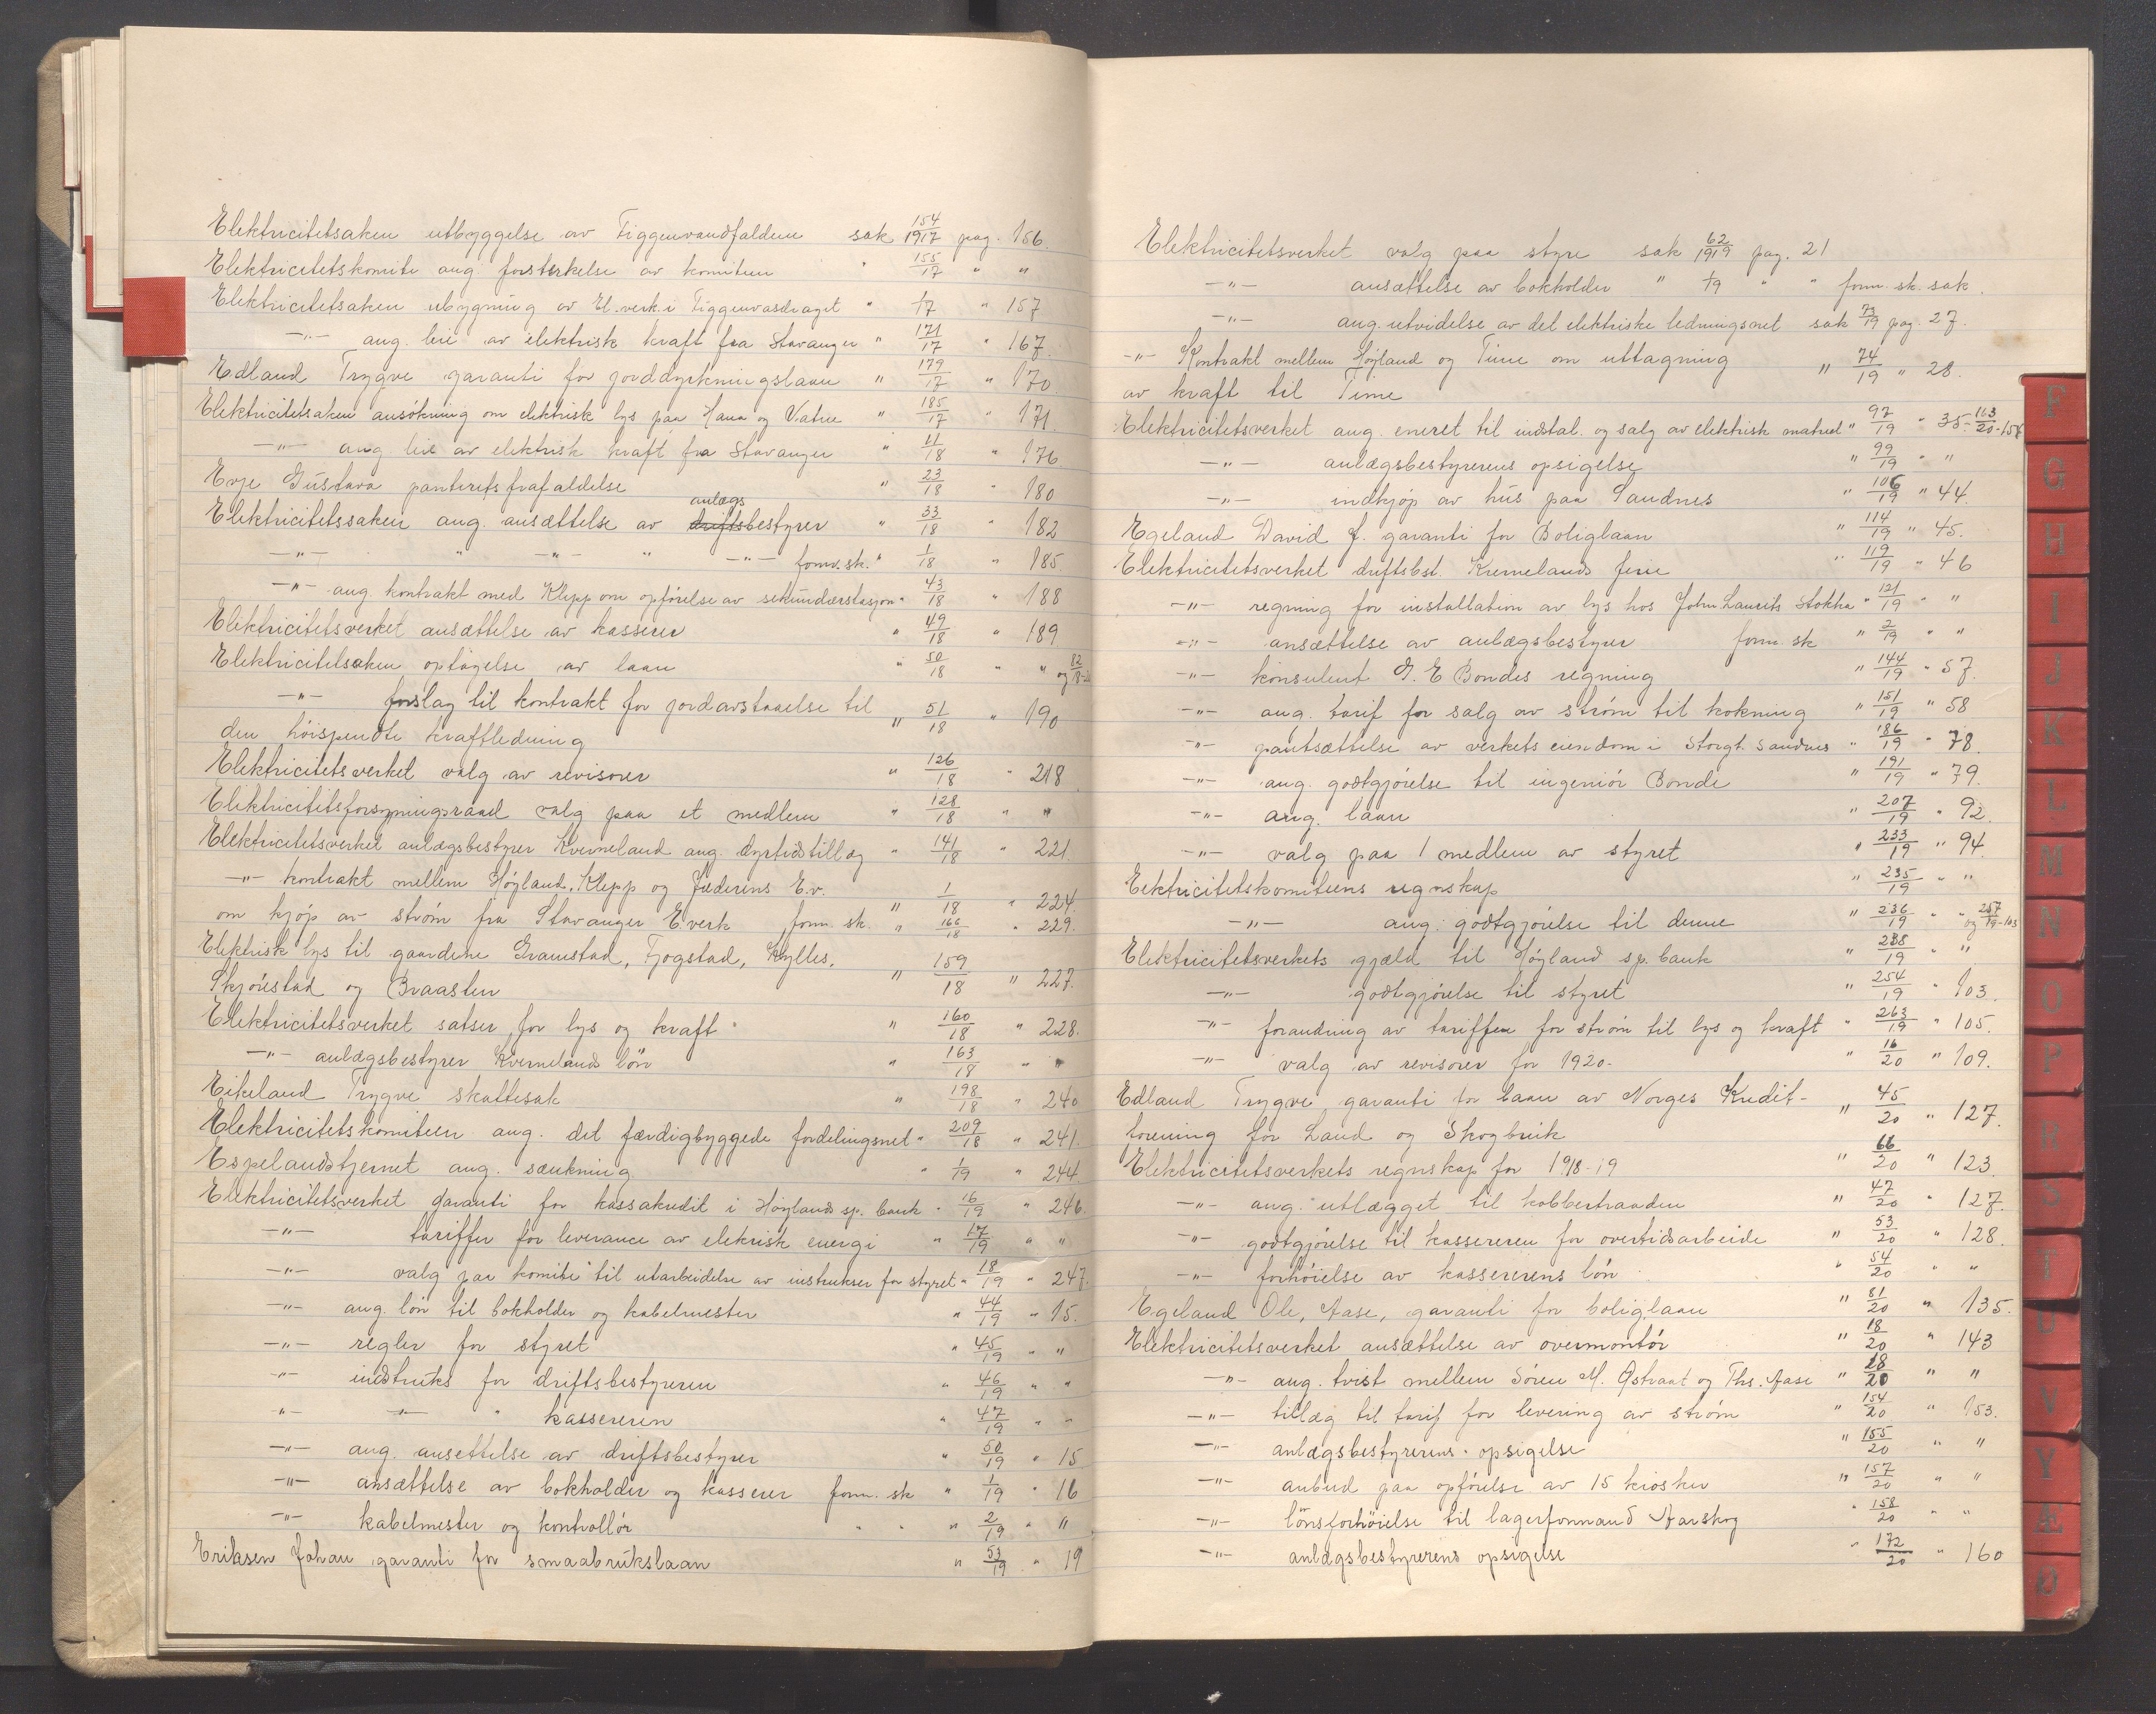 Elektricitetsaken utbyggelse av Figgenvandfaldene sak 154/1917 pag. 156.
Elektricetetskomite ang. forsterkelse av komiteen " 155/17 " "
Elektricitetsaken ubygning av El.verk. i Figgenvasdraget " 1/17 " 157
—"— ang. leie av elektrisk kraft fra Stavanger " 171/17 " 167.
Edland Trygve garanti for jorddyrkningslaan " 179/17 " 170
Elektricitetsaken ansökning om elektrisk lys paa Hana og Vatne " 185/17 " 171.
—"— ang leie av elektrisk kraft fra Stavanger " 11/18 " 176
Evje Gustava panterets frafaldelse " 23/18 " 180
anlægs
Elektricitetssaken ang. ansættelse av driftsbestyrer " 33/18 " 182
—"— " —"— " —"— formsk. " 1/18 " 185.
—"— ang. kontrakt med Klepp om opförelse av sekundærstasjon " 43/18 " 188
Elektricitetsverket ansættelse av kasserer " 49/18 " 189
Elektricitetsaken optagelse av laan " 50/18 " " og 82/18
—"— forslag til kontrakt for jordavstaaelse til " 51/18 " 190
den höispendte kraftledning
Elektricitetsverket valg av revisorer " 126/18 " 218
Elektricitetsforsyningsraad valg paa et medlem " 128/18 " "
Elektricitetsverket anlægsbestyrer Kverneland ang. dyrtidstillæg " 141/18 " 221.
—"— kontrakt mellem Höyland, Klepp og Jæderens E.v. " 1/18 " 224.
om kjöp av ström fra Stavanger E.verk form. sk. " 166/18 " 229.
Elektrisk lys til gaardene Gramstad, Fjogstad, Kylles,
Skjörestad og Braasten " 159/18 " 227.
Elektricitetsverket satser for lys og kraft " 160/18 " 228.
—"— anlægsbestyrer Kvernelands lön " 163/18 " "
Eikeland Trygve skattesak " 198/18 " 240
Elektricitetskomiteen ang. det færdigbyggede fordelingsnet " 209/18 " 241.
Espelandstjernet ang. sænkning " 1/19 " 244.
Elektricitetsverket garanti for kassakredit i Höylands sp. bank " 16/19 " 246.
—"— tariffer for leverance av elekrisk energi " 17/19 " "
—"— valg paa komite til utarbeidelse av instrukser for styret " 18/19 " 247.
—"— ang. lön til bokholder og kabelmester " 44/19 " 15.
—"— regler for styret " 45/19 " "
—"— indstruks for driftsbestyreren " 46/19 " "
" —"— " kassereren " 47/19 " "
—"— ang. ansettelse av driftsbestyrer " 50/19 " 15
—"— ansættelse av bokholder og kasserer form. sk " 1/19 " 16
—"— kabelmester og kontrollör " " " 2/19 " "
Eriksen Johan garanti for smaabrukslaan " 53/19 " 19
Elektricitetsverket valg paa styre sak 62/1919 pag. 21
—"— ansættelse av bokholder " 1/19 " " form. sk. sak.
—"— ang. utvidelse av det elektriske ledningsnet sak 73/19 pag. 27.
—"— Kontrakt mellem Höyland og Time om uttagning " 74/19 " 28.
av kraft til Time
Elektricitetsverket ang. eneret til indstal. og salg av elektrisk matriel " 97/19 " 35 - 163/20 - 158
—"— anlægsbestyrerens opsigelse " 99/19 " "
—"— indkjöp av hus paa Sandnes " 106/19 " 44.
Egeland David J. garanti for Boliglaan " 114/19 " 45.
Elektricitetsverket driftsbst. Kvernelands ferie " 119/19 " 46
—"— regning for installation av lys hos John Laurits Stokka " 121/19 " "
—"— ansættelse av anlægsbestyrer form. sk " 2/19 " "
—"— konsulent G. E Bondes regning " 144/19 " 57.
—"— ang. tarif for salg av ström til kokning " 151/19 " 58
—"— pantsættelse av verkets eiendom i Storgt. Sandnes " 186/19 " 78.
—"— ang. godtgjörelse til ingeniör Bonde " 191/19 " 79.
—"— ang. laan " 207/19 " 92.
—"— valg paa 1 medlem av styret " 233/19 " 94.
Eektricitetskomiteens regnskap " 235/19 " "
—"— ang. godtgjörelse til denne " 236/19 " " og 257/19-103
Elektricitetsverkets gjæld til Höyland sp. bank " 238/19 " "
—"— godtgjörelse til styret " 254/19 " 103.
—"— forandring av tariffen for ström til lys og kraft " 263/19 " 105.
—"— valg av revisorer for 1920- " 16/20 " 109.
Edland Trygve, garanti for laan av Norges Kredit- " 45/20 " 127.
forening for Land og Skogbruk
Elektricitetsverkets regnskap for 1918-19 " 66/20 " 123
—"— ang. utlægget til kobbertraaden " 47/20 " 127.
—"— godtgjörelse til kassereren for overtidsarbeide " 53/20 " 128.
—"— forhöielse av kassererens lön " 54/20 " "
Egeland Ole, Aase, garanti for boliglaan " 81/20 " 135.
Elektricitetsverket ansættelse av overmontör " 18/20 " 143
—"— ang. tvist mellem Sören M. Østraat og Ths. Aase " 28/20 " "
—"— tillæg til tarif for levering av ström " 154/20 " 153.
—"— anlægsbestyrerens opsigelse " 155/20 " "
—"— anbud paa opförelse av 15 kiosker " 157/20 " "
—"— lönsforhöielse til lagerformand Aarskog " 158/20 " "
—"— anlægsbestyrerens opsigelse " 172/20 " 160
F
G
H
I
J
K
L
M
N
O
P
R
S
T
U
V
Y
Æ
Ø